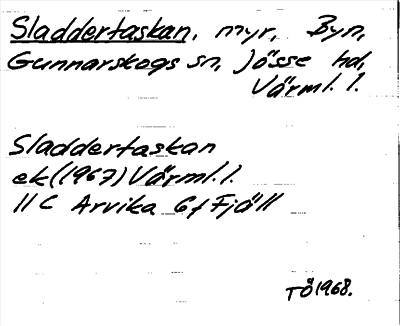 Sladdertaskan, myr, Byn,
Gunnarskogs sn, Jösse hd,
Värml. l.
Sladdertaskan
ek (1967) Värml. l.
11 C Arvika 6 f Fjäll
TÖ 1968.